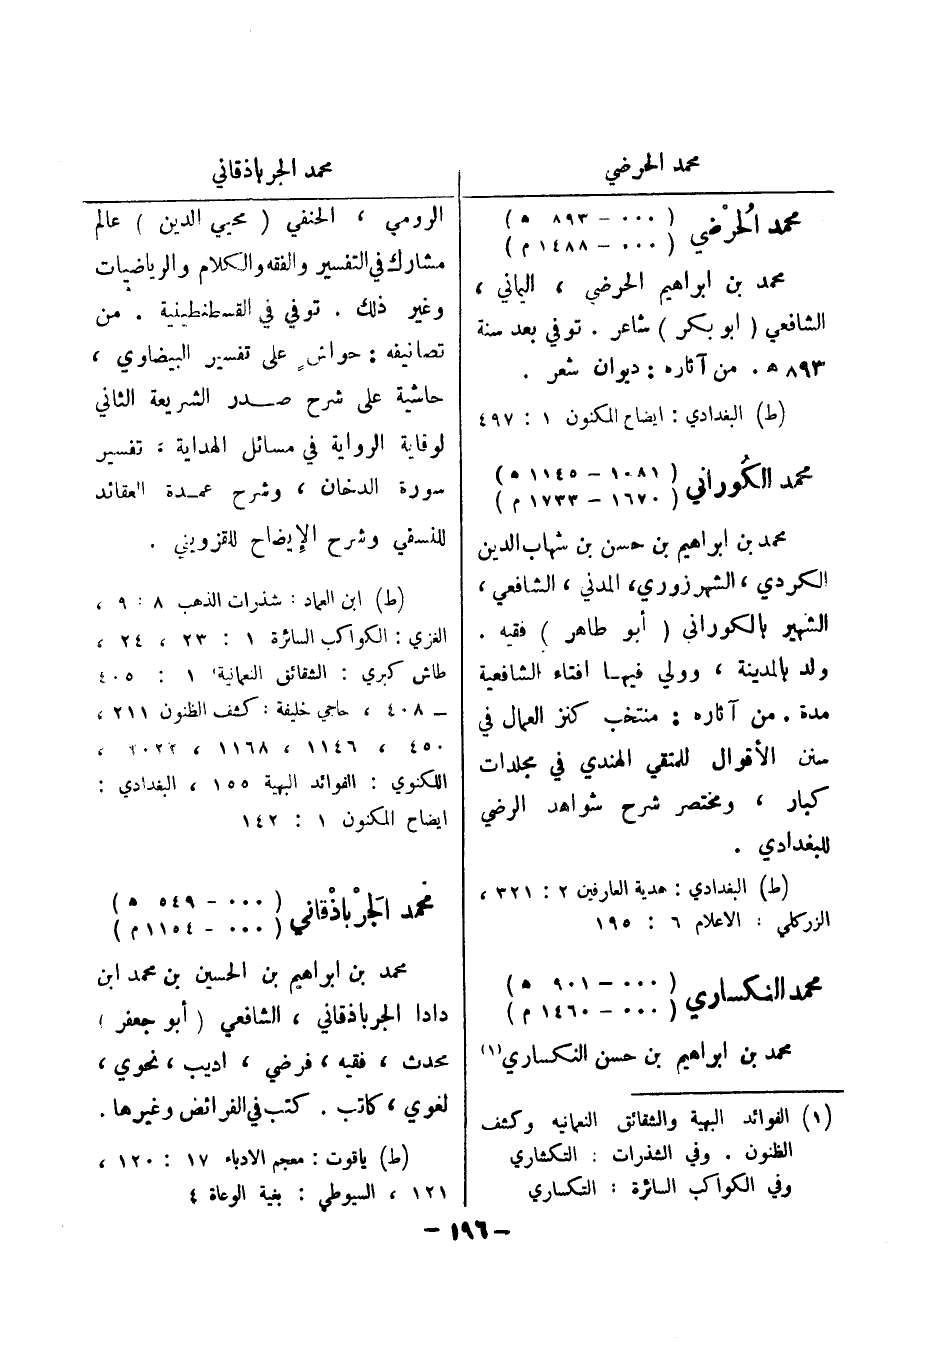 محمد الحرضي
محمد الحُرْضي ( ٠٠٠ - ٨٩٣ هـ )
( ٠٠٠ - ١٤٨٨ م )
محمد بن ابراهيم الحرضي ، اليماني ،
الشافعي ( ابو بكر ) شاعر . توفي بعد سنة
٨٩٣ هـ . من آثاره : ديوان شعر .
(ط) البغدادي : ايضاح المكنون ١ : ٤٩٧
محمد الكُوراني ( ١٠٨١ - ١١٤٥ هـ )
( ١٦٧٠ - ١٧٣٣ م )
محمد بن ابراهيم بن حسن بن شهاب الدين
الكردي ، الشهرزوري، المدني ، الشافعي ،
الشهير بالكوراني ( أبو طاهر ) فقيه .
ولد بالمدينة ، وولي فيهـا افتاء الشافعية
مدة . من آثاره : منتخب كنز العمال في
سنن الأقوال للمتقي الهندي في مجلدات
كبار ، ومختصر شرح شواهد الرضي
للبغدادي .
(ط) البغدادي : هدية العارفين ٢ : ٣٢١ ،
الزركلي : الاعلام ٦ : ١٩٥
محمد النكساري ( ٠٠٠ - ٩٠١ هـ )
( ٠٠٠ - ١٤٦٠ م )
محمد بن ابراهيم بن حسن النكساري (١)
(١) الفوائد البهية والشقائق النعمانيه وكشف
الظنون . وفي الشذرات : التكشاري
وفي الكواكب السائرة : التكساري
محمد الجرباذقاني
الرومي ، الحنفي ( محيي الدين ) عالم
مشارك في التفسير والفقه والكلام والرياضيات
وغير ذلك . توفي في القسطنطينية . من
تصانيفه : حواشٍ على تفسير البيضاوي ،
حاشية على شرح صـــدر الشريعة الثاني
لوقاية الرواية في مسائل الهداية ، تفسير
سورة الدخان ، وشرح عمـدة العقائد
للنسفي وشرح الإيضاح للقزويني .
(ط) ابن العماد : شذرات الذهب ٨ : ٩ ،
الغزي : الكواكب السائرة ١ : ٢٣ ، ٢٤ ،
طاش كبري : الشقائق النعمانية ١ : ٤٠٥
- ٤٠٨ ، حاجي خليفة : كشف الظنون ٢١١ ،
٤٥٠ ، ١١٤٦ ، ١١٦٨ ، ٢٠٢٢ ،
اللكنوي : الفوائد البهية ١٥٥ ، البغدادي :
ايضاح المكنون ١ : ١٤٢
محمد الجَرْباذْقاني ( ٠٠٠ - ٥٤٩ هـ )
( ٠٠٠ - ١١٥٤ م )
محمد بن ابراهيم بن الحسين بن محمد ابن
دادا الجرباذقاني ، الشافعي ( أبو جعفر )
محدث ، فقيه ، فرضي ، اديب ، نحوي ،
لغوي ، كاتب . كتب في الفرائض وغيرها .
(ط) ياقوت : معجم الادباء ١٧ : ١٢٠ ،
١٢١ ، السيوطي : بغية الوعاة ٤
- ١٩٦ -